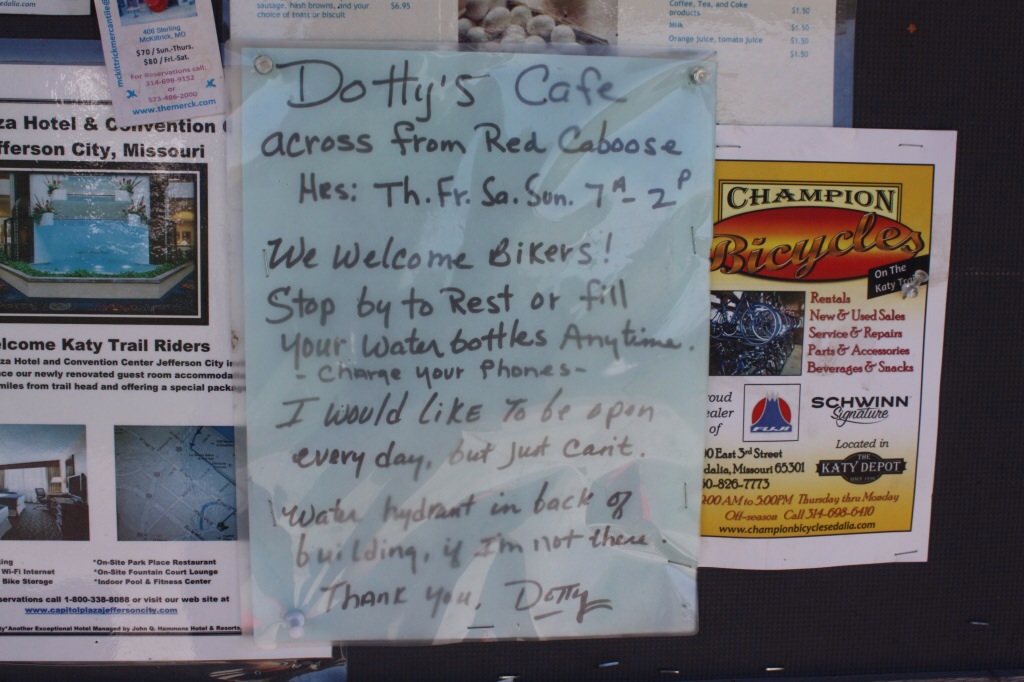 edalia.com
mckittrickmercantile@
406 Sterling
McKittrick, MO
$70 / Sun.-Thurs.
$80 / Fri.-Sat.
For Reservations call:
314-608-9152
or
573-486-2000
www.themerck.com
sausage, hash browns, and your
choice of toast or biscuit
$6.95
Coffee, Tea, and Coke
products
$1.50
Milk
$1.50
Orange juice, tomato juice
$1.50
$1.50
za Hotel & Convention
fferson City, Missouri
elcome Katy Trail Riders
za Hotel and Convention Center Jefferson City in
ce our newly renovated guest room accommoda
miles from trail head and offering a special packag
ing
Wi-Fi Internet
Bike Storage
*On-Site Park Place Restaurant
*On-Site Fountain Court Lounge
*Indoor Pool & Fitness Center
servations call 1-800-338-8088 or visit our web site at
www.capitolplazajeffersoncity.com
ty*Another Exceptional Hotel Managed by John Q. Hammons Hotel & Resorts
Dotty's Cafe
across from Red Caboose
Hrs: Th. Fr. Sa. Sun. 7A - 2P
We Welcome Bikers!
Stop by to Rest or fill
your Water bottles Anytime.
- Charge your Phones -
I would like to be open
every day, but just can't.
Water hydrant in back of
building, if I'm not there.
Thank you, Dotty
CHAMPION
Bicycles
On The
Katy Trail
Rentals
New & Used Sales
Service & Repairs
Parts & Accessories
Beverages & Snacks
roud
ealer
of
FUJI
SCHWINN
Signature
Located in
THE
KATY DEPOT
00 East 3rd Street
dalia, Missouri 65301
60-826-7773
9:00 AM to 5:00PM Thursday thru Monday
Off-season Call 314-698-6410
www.championbicyclesedalia.com